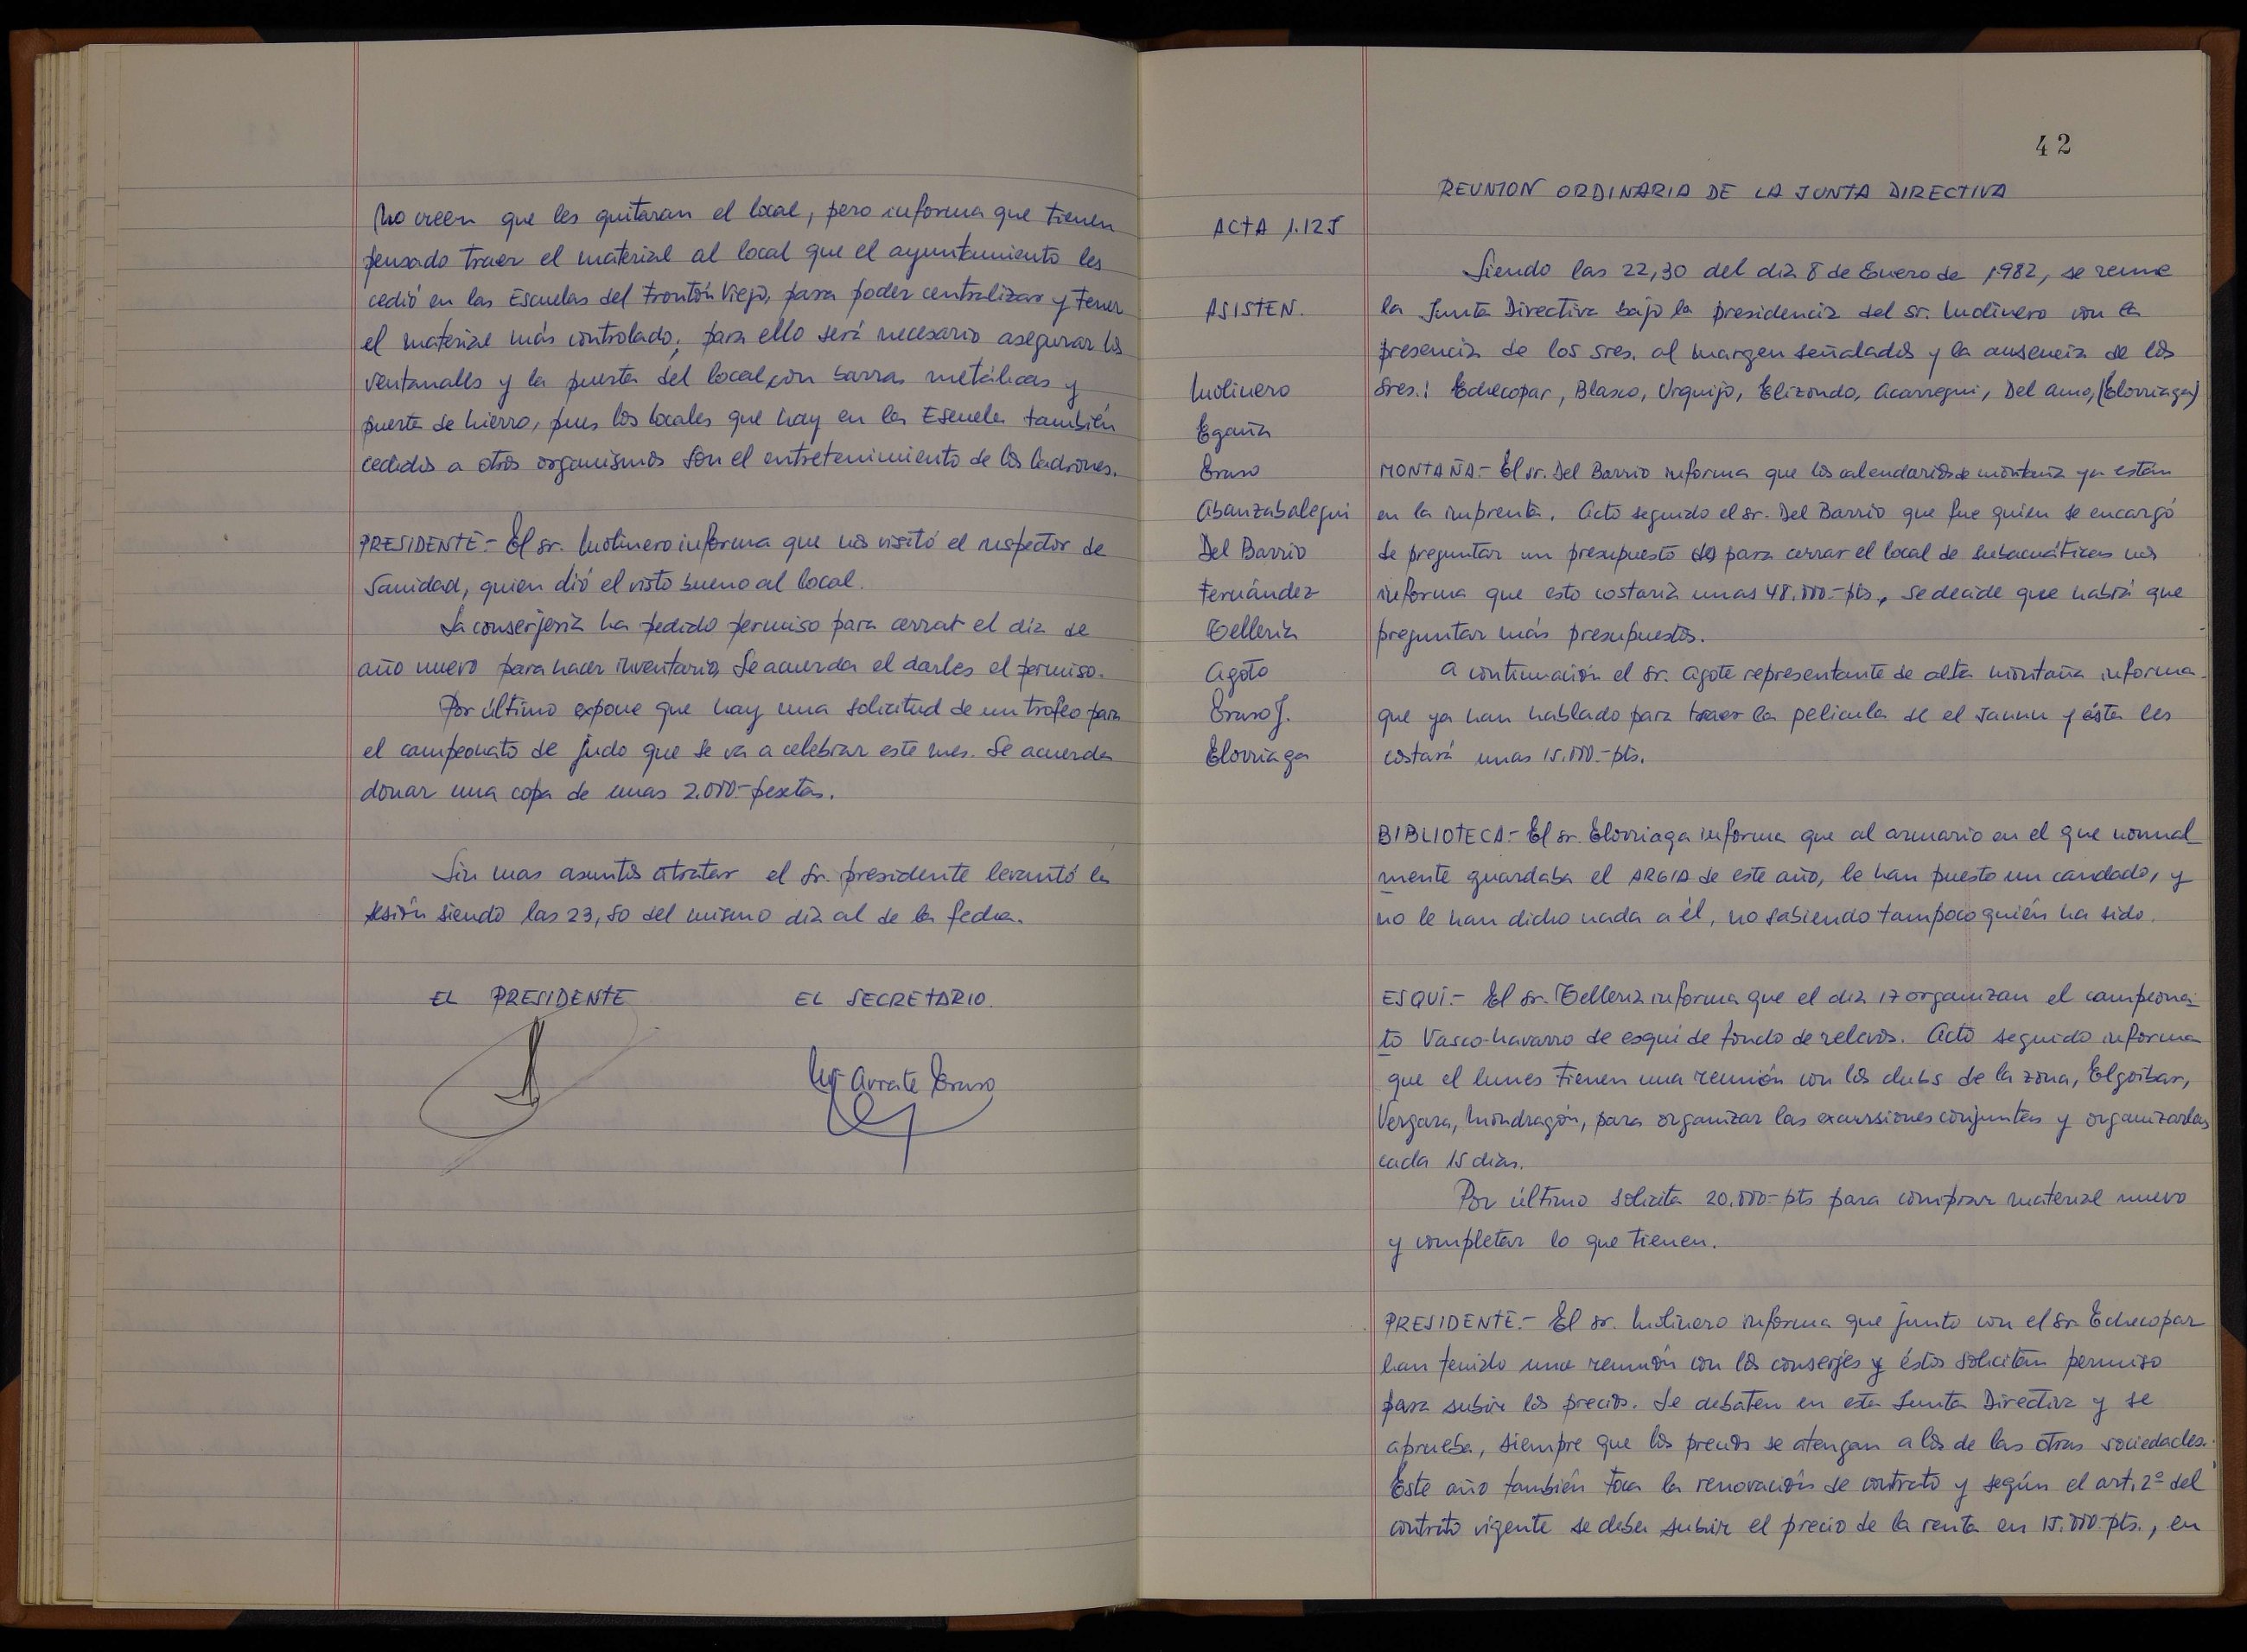 no creen que les quitaran el local, pero informa que tienen
pensado traer el material al local que el ayuntamiento les
cedió en las Escuelas del Frontón Viejo, para poder centralizar y tener
el material más controlado; para ello será necesario asegurar los
ventanales y la puerta del local con barras metálicas y
puerta de hierro, pues los locales que hay en la Escuela también
cedidos a otros organismos son el entretenimiento de los ladrones.
PRESIDENTE.- El sr. Molinero informa que nos visitó el inspector de
Sanidad, quien dió el visto bueno al local.
La conserjería ha pedido permiso para cerrar el día de
año nuevo para hacer inventario. Se acuerda el darles el permiso.
Por último expone que hay una solicitud de un trofeo para
el campeonato de judo que se va a celebrar este mes. Se acuerda
donar una copa de unas 2.000.- pesetas.
Sin mas asuntos a tratar el Sr. presidente levantó la
sesión siendo las 23,50 del mismo día al de la fecha.
EL PRESIDENTE EL SECRETARIO.
Mª Arrate Eraso
42
REUNION ORDINARIA DE LA JUNTA DIRECTIVA
ACTA 1.125
ASISTEN.
Molinero
Egaña
Eraso
Abanzabalegui
Del Barrio
Fernández
Telleria
Agote
Eraso J.
Elorriaga
Siendo las 22,30 del día 8 de Enero de 1982, se reune
la Junta Directiva bajo la presidencia del sr. Molinero con la
presencia de los sres. al margen señalados y la ausencia de los
Sres.: Echecopar, Blasco, Urquijo, Elizondo, Acarregui, Del Amo, (Elorriaga)
MONTAÑA.- El sr. Del Barrio informa que los calendarios de montaña ya están
en la imprenta. Acto seguido el sr. Del Barrio que fue quien se encargó
de preguntar un presupuesto para cerrar el local de subacuáticas nos
informa que esto costaría unas 48.000.- pts., se decide que habrá que
preguntar más presupuestos.
A continuación el sr. Agote representante de alta montaña informa
que ya han hablado para traer la película de el Jannu y ésta les
costará unas 15.000.- pts.
BIBLIOTECA.- El sr. Elorriaga informa que al armario en el que normal
mente guardaba el ARGIA de este año, le han puesto un candado, y
no le han dicho nada a él, no sabiendo tampoco quién ha sido.
ESQUÍ.- El sr. Telleria informa que el día 17 organizan el campeona-
to Vasco-navarro de esquí de fondo de relevos. Acto seguido informa
que el lunes tienen una reunión con los clubs de la zona, Elgoibar,
Vergara, Mondragón, para organizar las excursiones conjuntas y organizarlas
cada 15 días.
Por último solicita 20.000.- pts para comprar material nuevo
y completar lo que tienen.
PRESIDENTE.- El sr. Molinero informa que junto con el sr. Echecopar
han tenido una reunión con los conserjes y éstos solicitan permiso
para subir los precios. Se debaten en esta Junta Directiva y se
aprueba, siempre que los precios se atengan a los de las otras sociedades.
Este año también toca la renovación de contrato y según el art. 2º del
contrato vigente se debe subir el precio de la renta en 15.000 pts., en